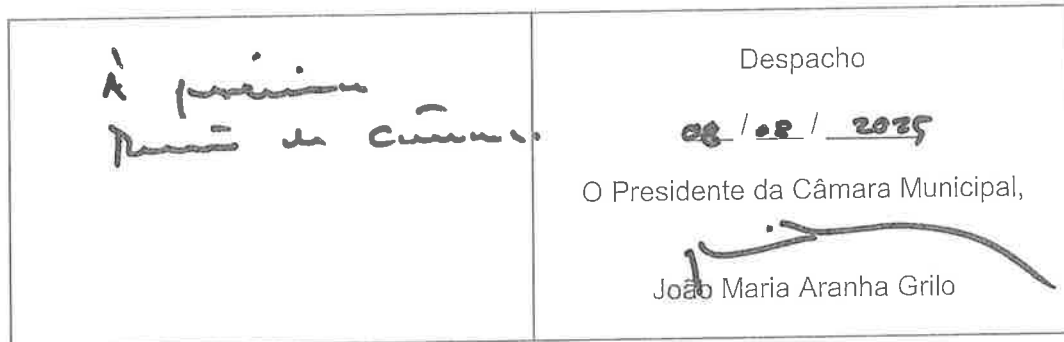 À próxima
Reunião de Câmara.
Despacho
08 / 08 / 2025
O Presidente da Câmara Municipal,
João Maria Aranha Grilo